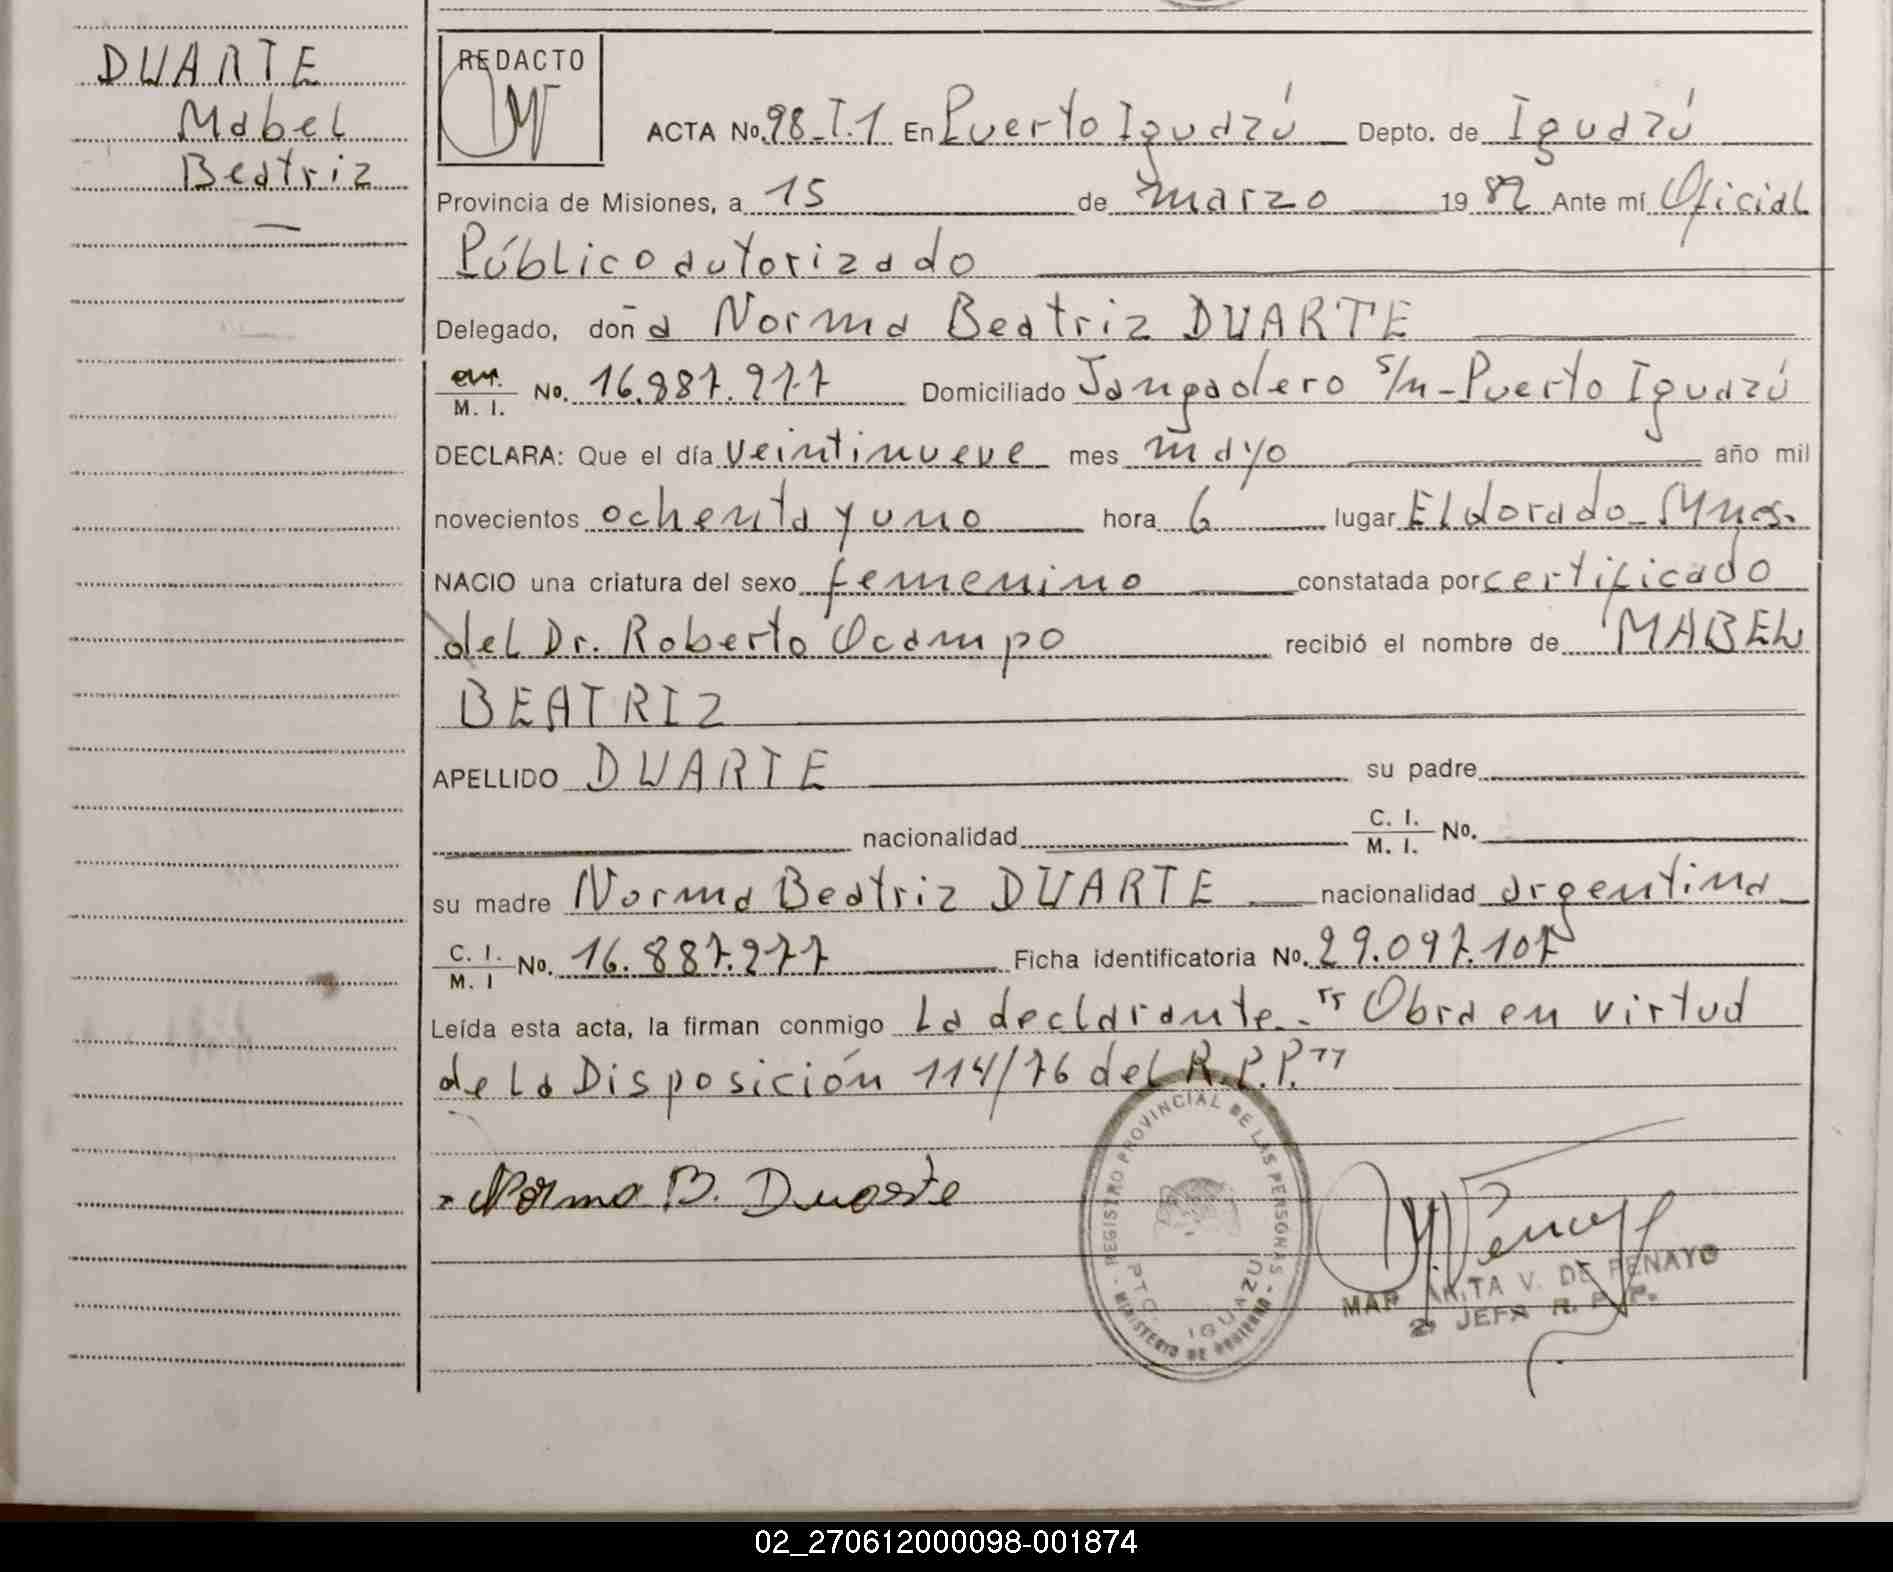 DUARTE
Mabel
Beatriz
REDACTO
ACTA No. 98-T.1 En Puerto Iguazú Depto. de Iguazú
Provincia de Misiones, a 15 de marzo 1982 Ante mí Oficial
Público autorizado
Delegado, doña Norma Beatriz DUARTE
M. I. No. 16.887.977 Domiciliado Jangadero s/n - Puerto Iguazú
DECLARA: Que el día veintinueve mes mayo año mil
novecientos ochenta y uno hora 6 lugar Eldorado - Mnes.
NACIO una criatura del sexo femenino constatada por certificado
del Dr. Roberto Ocampo recibió el nombre de MABEL
BEATRIZ
APELLIDO DUARTE su padre
nacionalidad C. I. M. I. No.
su madre Norma Beatriz DUARTE nacionalidad argentina
C. I. M. I No. 16.887.977 Ficha identificatoria No. 29.097.107
Leída esta acta, la firman conmigo la declarante.- "Obra en virtud
de la Disposición 114/76 del R.P.P."
Norma B. Duarte
REGISTRO PROVINCIAL DE LAS PERSONAS
PTO. IGUAZU
MINISTERIO DE GOBIERNO
V. DE PENAYO
JEFA R. P. P.
02_270612000098-001874